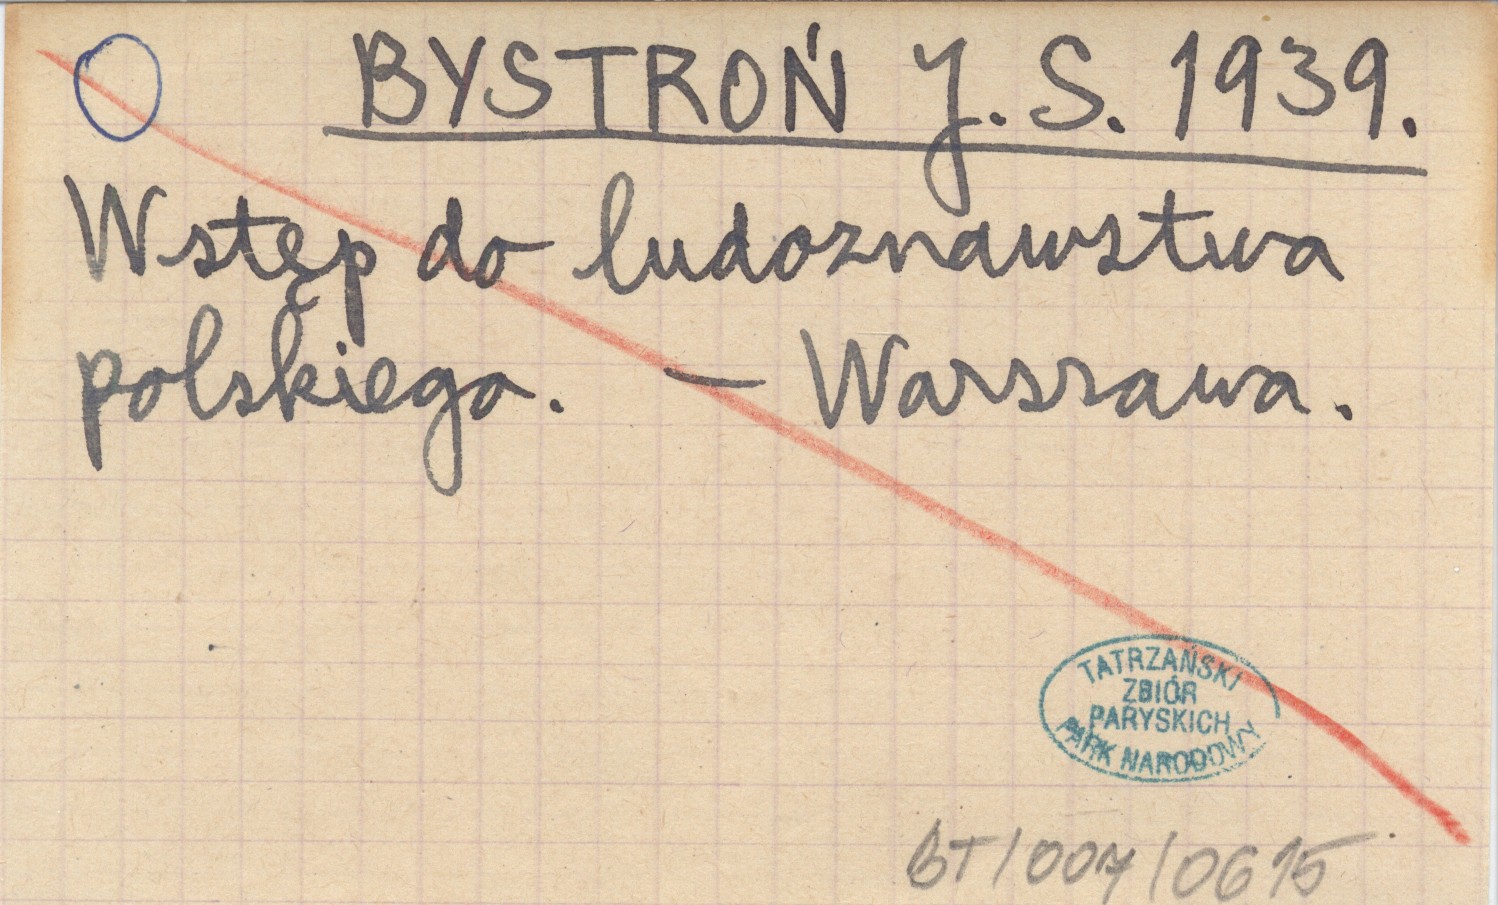 BYSTROŃ J. S. 1939.
Wstęp do ludoznawstwa
polskiego. — Warszawa.
TATRZAŃSKI
ZBIÓR
PARYSKICH
PARK NARODOWY
BT/007/0615